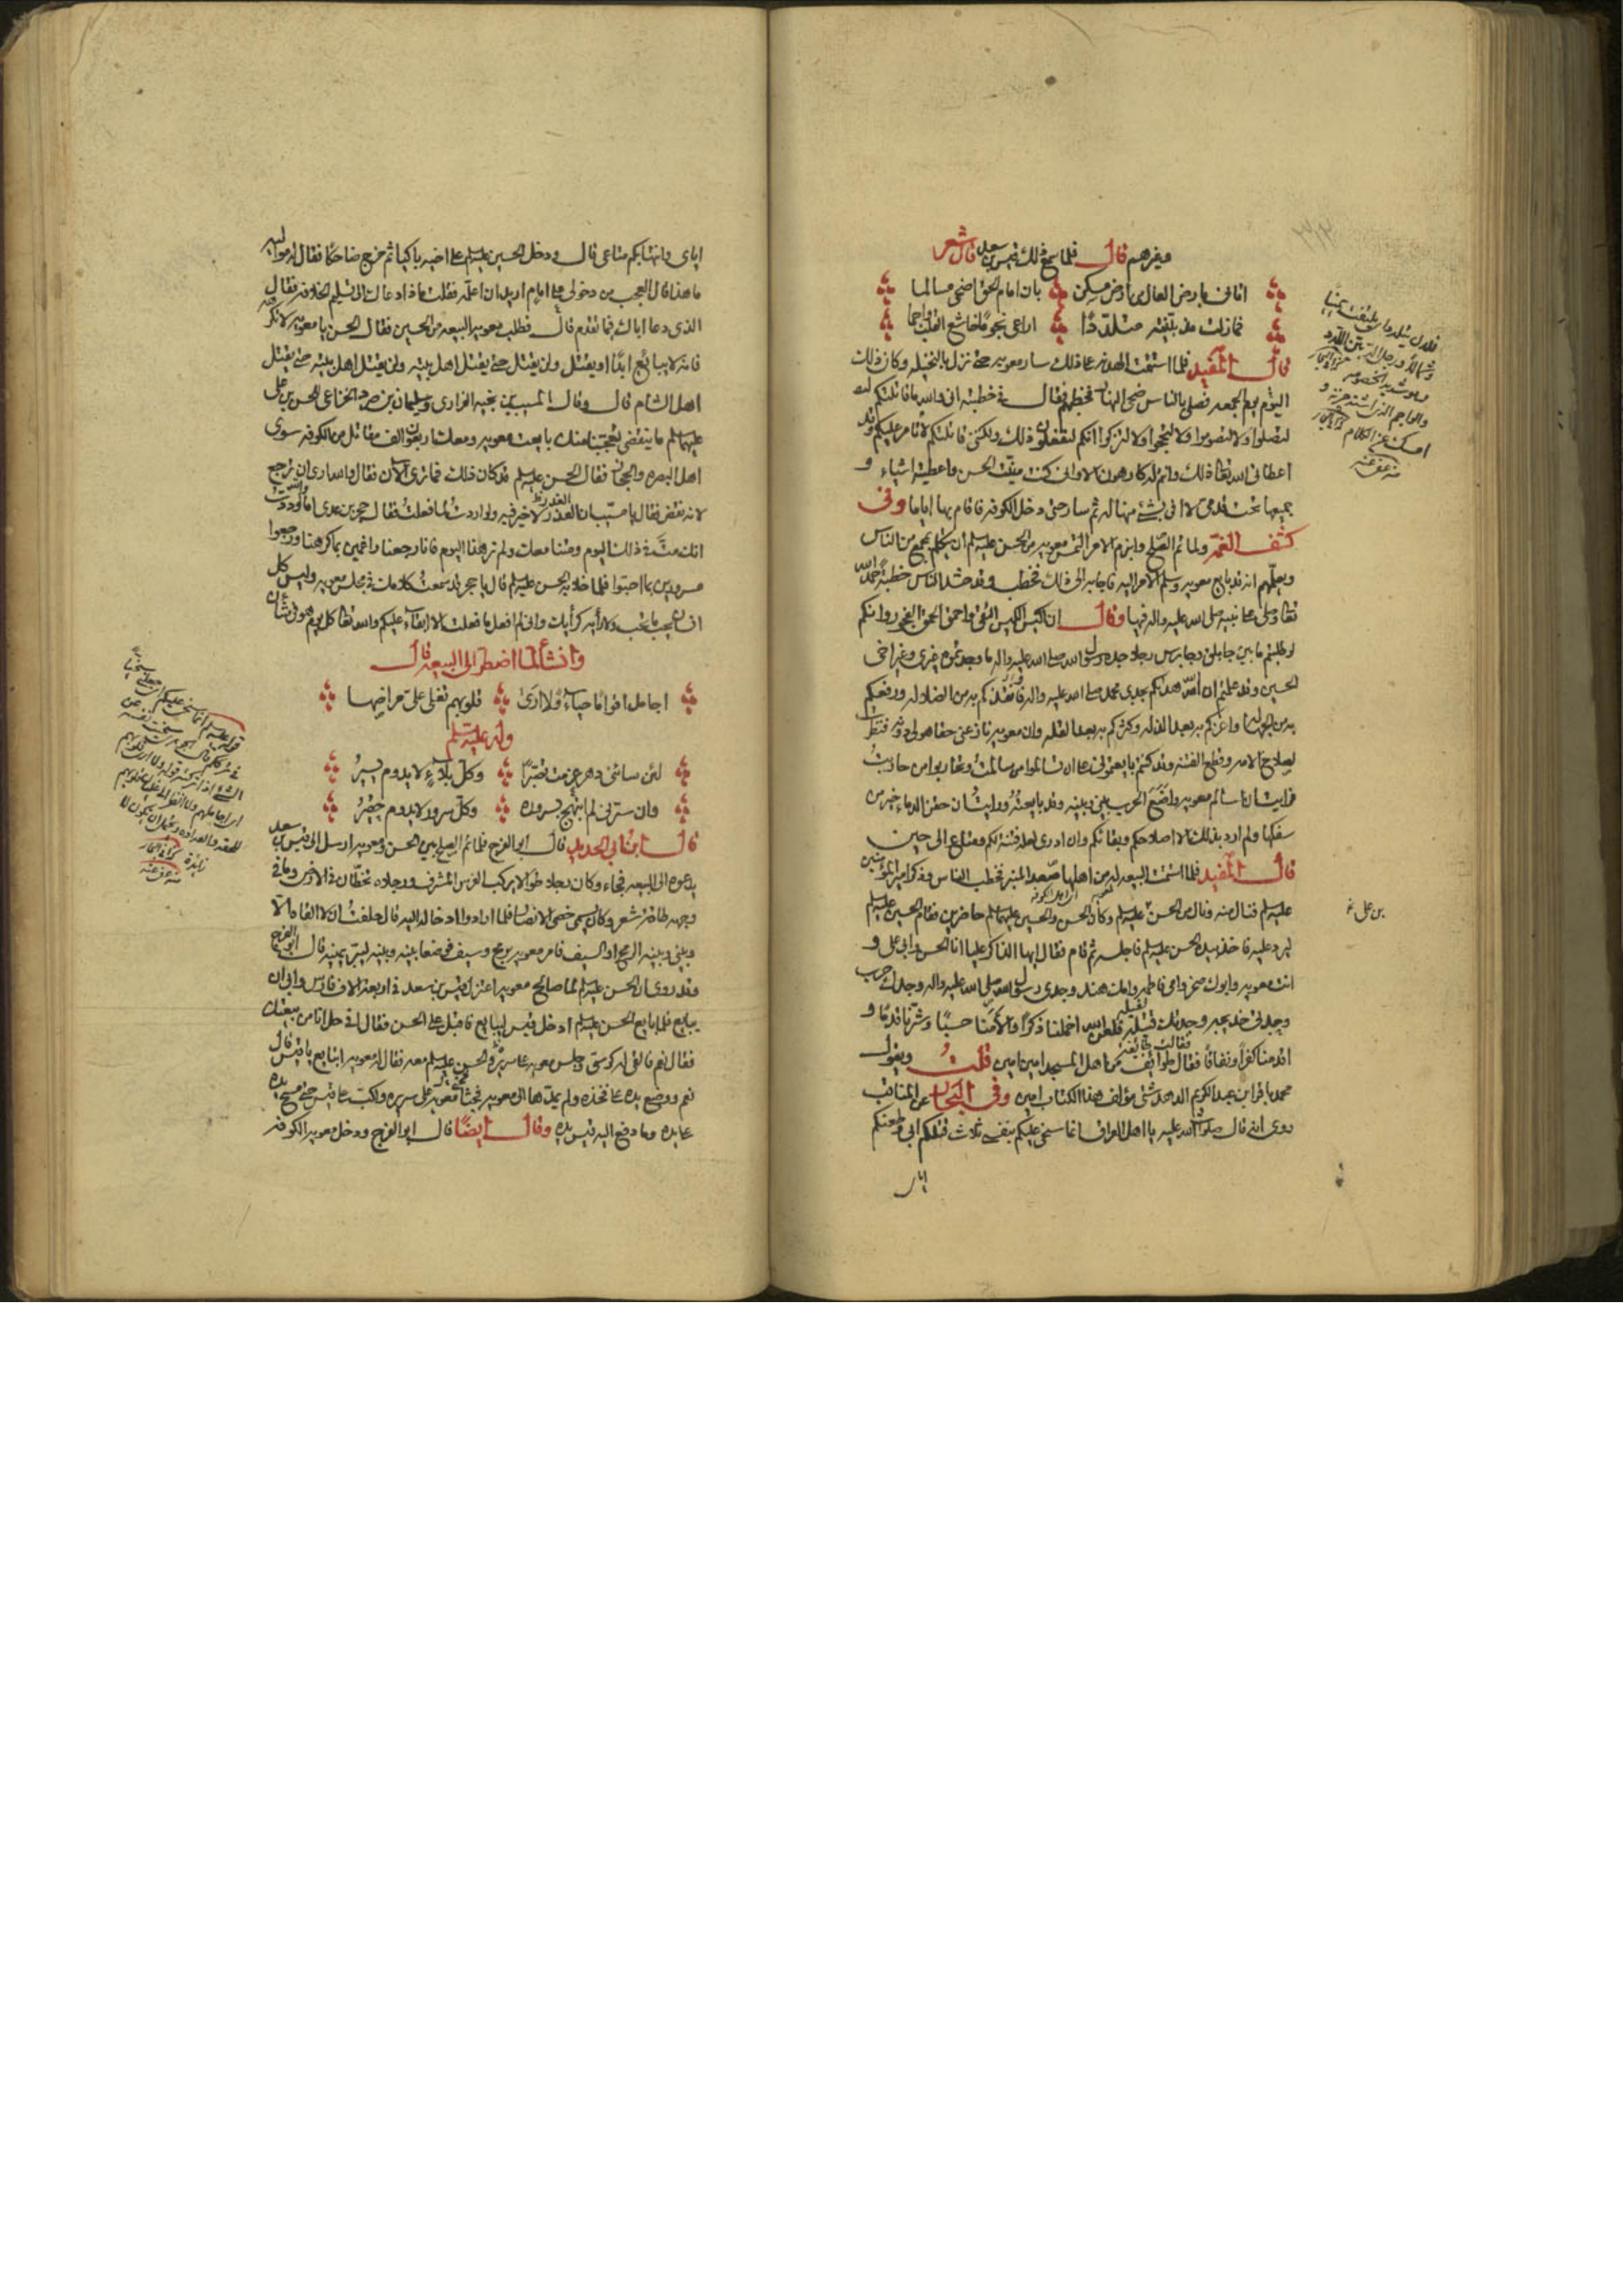 وغيرهم قال فلما سمع ذلك قيس بن سعد قال شعر
اتانى بارض العال من ارض مسكن بان امام الحق اضحى مسالما
فما زلت مذ بيّنته متلدّدًا اراعى نجومًا خاشع القلب واجما
قال المفيد فلما استتمت الهدنه على ذلك سار معويه حتى نزل بالنخيله وكان ذلك
اليوم يوم الجمعه فصلى بالناس ضحى النهار فخطبهم وقال فى خطبته انى والله ما قاتلتكم
لتصلوا ولا لتصوموا ولا لتحجوا ولا لتزكوا انكم لتفعلون ذلك ولكنى قاتلتكم لاتامر عليكم وقد
اعطانى الله تعالى ذلك وانتم له كارهون الا وانى كنت منّيت الحسن واعطيته اشياء و
جميعها تحت قدمى لا افى بشئ منها له ثم سار حتى دخل الكوفه فاقام بها اياما وفى
كشف الغمّه ولما تم الصلح وانبرم الامر التمس معويه من الحسن عليه السلم ان يتكلم بمجمع من الناس
ويعلمهم انه قد بايع معويه وسلم الامر اليه فاجابه الى ذلك فخطب وقد حشد الناس خطبة حمد الله
تعالى وصلى على نبيه صلى الله عليه واله فيها وقال ان اكيس الكيس التقى واحمق الحمق الفجور وانكم
لو طلبتم ما بين جابلق وجابرس رجلا جده رسول الله صلى الله عليه واله ما وجدتموه غيرى وغير اخى
الحسين وقد علمتم ان الله هداكم بجدى محمد صلى الله عليه واله فانقذكم به من الضلاله ورفعكم
به من الجهاله واعزكم به بعد الذله وكثركم به بعد القله وان معويه نازعنى حقا هو لى دونه فنظرت
لصلاح الامه وقطع الفتنه وقد كنتم بايعتمونى على ان تسالموا من سالمت وتحاربوا من حاربتُ
فرايت ان اسالم معويه واضع الحرب بينى وبينه وقد بايعتهُ ورايتُ ان حقن الدماء خير من
سفكها ولم ارد بذلك الا صلاحكم وبقائكم وان ادرى لعله فتنة لكم ومتاع الى حين
قال المفيد فلما استتمت البيعه له من اهلها صعد المنبر فخطب الناس وذكر امير المؤمنين
عليه السلم فنال منه ونال من الحسن عليه السلم وكان الحسن والحسين عليهما السلم حاضرين فقام الحسين عليه السلم
ليرد عليه فاخذ بيده الحسن عليه السلم فاجلسه ثم قام فقال ايها الذاكر عليا انا الحسن وابى على و
انت معويه وابوك صخر وامى فاطمه وامك هند وجدى رسول الله صلى الله عليه واله وجدك حرب
وجدتى خديجه وجدتك قتيله فلعن الله اخملنا ذكرًا والأمنا حسبًا وشرنا قدمًا و
اقدمنا كفرًا ونفاقًا فقال طوايف من اهل المسجد امين امين قلتُ ويقول
محمد باقر ابن عبد الكريم الدهدشتى مؤلف هذا الكتاب امين وفى البحار عن المناقب
روى انه قال صلوات الله عليه يا اهل العراق انما سخى عليكم بنفسى ثلاث قتلكم ابى وطعنكم
اياى
بن على
اياى وانتهابكم متاعى قال ودخل الحسين عليه السلم على اخيه باكيا ثم خرج ضاحكا فقال له مواليه
ما هذا قال العجب من دخولى على امام اريد ان اعلّمه فقلت ماذا دعاك الى تسليم الخلافه فقال
الذى دعا اباك فيما تقدم قال فطلب معويه البيعه من الحسين فقال الحسن يا معويه لا تكرهه
فانه لا يبايع ابدًا او يقتل ولن يقتل حتى يقتل اهل بيته ولن يقتل اهل بيته حتى يقتل
اهل الشام قال وقال المسيب بن نجبه الفزارى وسليمان بن صرد الخزاعى للحسن بن على
عليهما السلم ما ينقضى تعجبنا منك بايعت معويه ومعك اربعون الف مقاتل من الكوفه سوى
اهل البصره والحجاز فقال الحسن عليه السلم قد كان ذلك فما ترى الآن فقال والله ارى ان ترجع
لانه نقض فقال يا مسيب ان الغدر لا خير فيه ولو اردت لما فعلت فقال حجر بن عدى اما والله لوددت
انك متّ فى ذلك اليوم ومتنا معك ولم نر هذا اليوم فانا رجعنا راغمين بما كرهنا ورجعوا
مسرورين بما احبوا فلما خلا به الحسن عليه السلم قال يا حجر قد سمعت كلامك فى مجلس معويه وليس كل
انسان يحب ما تحب ولا رأيه كرأيك وانى لم افعل ما فعلت الا ابقاء عليكم والله تعالى كل يوم هو فى شأن
وانشأ لما اضطر الى البيعه قال
اجامل اقوامًا حياءً ولا ارى قلوبهم تغلى على مراضها
وله عليه السلم
لئن سائنى دهر عزمت تصبّرًا وكل بلاءٍ لا يدوم يسيرُ
وان سرّنى لم ابتهج بسروره وكل سرور لا يدوم حقيرُ
قال ابن ابى الحديد قال ابو الفرج فلما تم الصلح بين الحسن ومعويه ارسل الى قيس بن سعد
يدعوه الى البيعه فجاء وكان رجلا طوالا يركب الفرس المشرف ورجلاه تخطان فى الارض وما فى
وجهه طاقة شعر وكان يسمى خصى الانصار فلما ارادوا ادخاله اليه قال حلفتُ ان لا القاه الّا
وبينى وبينه الرمح او السيف فامر معويه برمح وسيف فوضعا بينه وبينه ليبر يمينه قال ابو الفرج
وقد روى ان الحسن عليه السلم لما صالح معويه اعتزل قيس بن سعد فى اربعة الاف فارس وابى ان
يبايع فلما بايع الحسن عليه السلم ادخل قيس ليبايع فاقبل على الحسن فقال افى حل انا من بيعتك
فقال نعم فالقى له كرسى وجلس معويه على سريره والحسن عليه السلم معه فقال له معويه اتبايع يا قيس قال
نعم ووضع يده على فخذه ولم يمدّها الى معويه فجثا معويه على سريره واكبّ على قيس حتى مسح يده
على يده وما رفع اليه قيس يده وقال ايضًا قال ابو الفرج ودخل معويه الكوفه